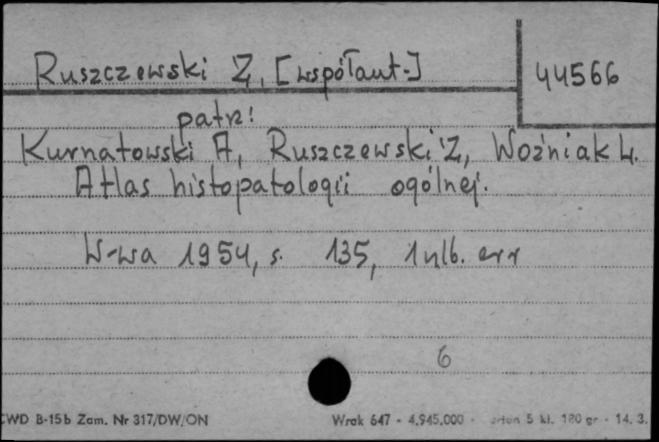 Ruszczewski Z, [współaut-]
44566
patrz!
Kurnatowski A, Ruszczewski Z, Woźniak L.
Atlas histopatologii ogólnej.
W-wa 1954, s. 135, 1 nlb. err
6
CWD B-15b Zam. Nr 317/DW/ON Wrak 647 - 4.945.000 - 5 kl. 180 gr - 14. 3.